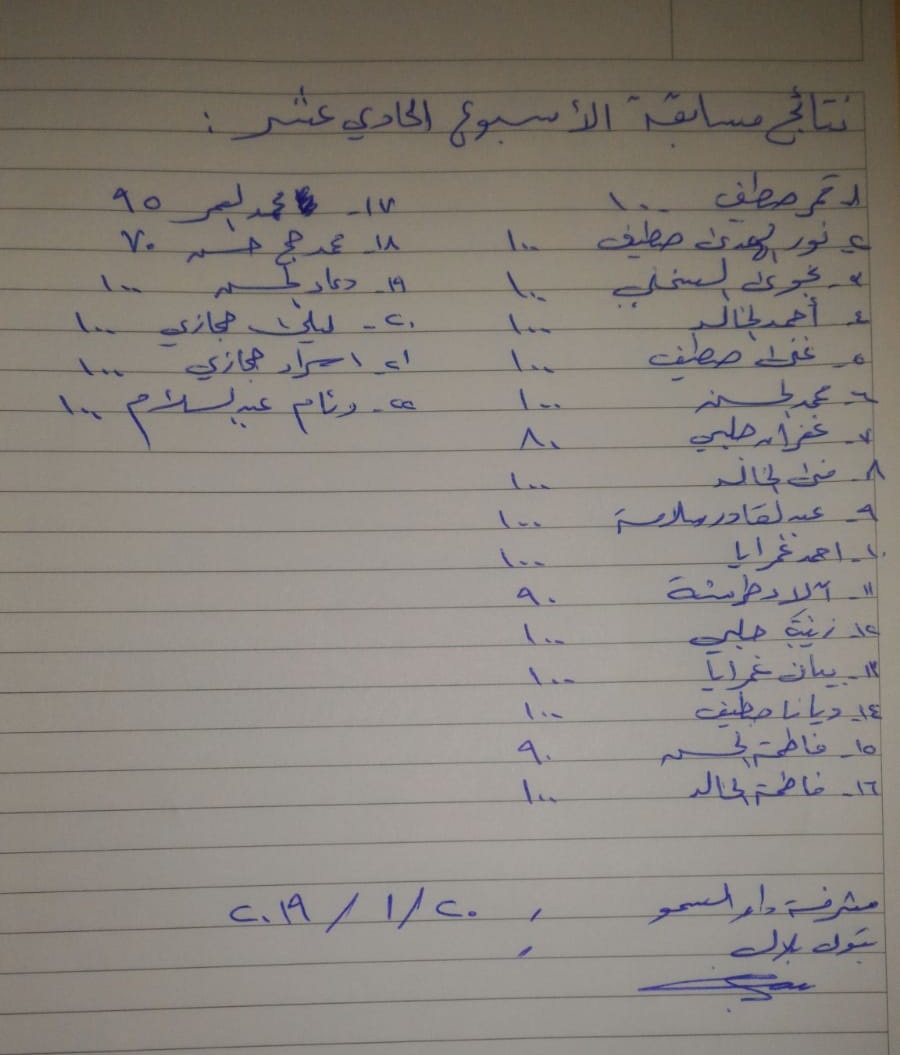 نتائج مسابقة الأسبوع الحادي عشر :
١- قمر صطيف ١٠٠
٢- نور الهدى صطيف ١٠٠
٣- نجوى السخلي ١٠٠
٤- أحمد الخالد ١٠٠
٥- غنى صطيف ١٠٠
٦- محمد الحسن ١٠٠
٧- غفران حلبي ٨٠
٨- منى الخالد ١٠٠
٩- عبد القادر سلامة ١٠٠
١٠- احمد غرايا ١٠٠
١١- آلاء طرشة ٩٠
١٢- زينة حلبي ١٠٠
١٣- بيان غرايا ١٠٠
١٤- ديانا صطيف ١٠٠
١٥- فاطمة الحسن ٩٠
١٦- فاطمة الخالد ١٠٠
١٧- محمد العمر ٩٥
١٨- محمد حج حسن ٧٠
١٩- دعاء الحسن ١٠٠
٢٠- ليلى حجازي ١٠٠
٢١- اسراء حجازي ١٠٠
٢٢- وئام عبد السلام ١٠٠
مشرفة دار السمو ، ٢٠ / ١ / ٢٠١٩
بتول بلال ،